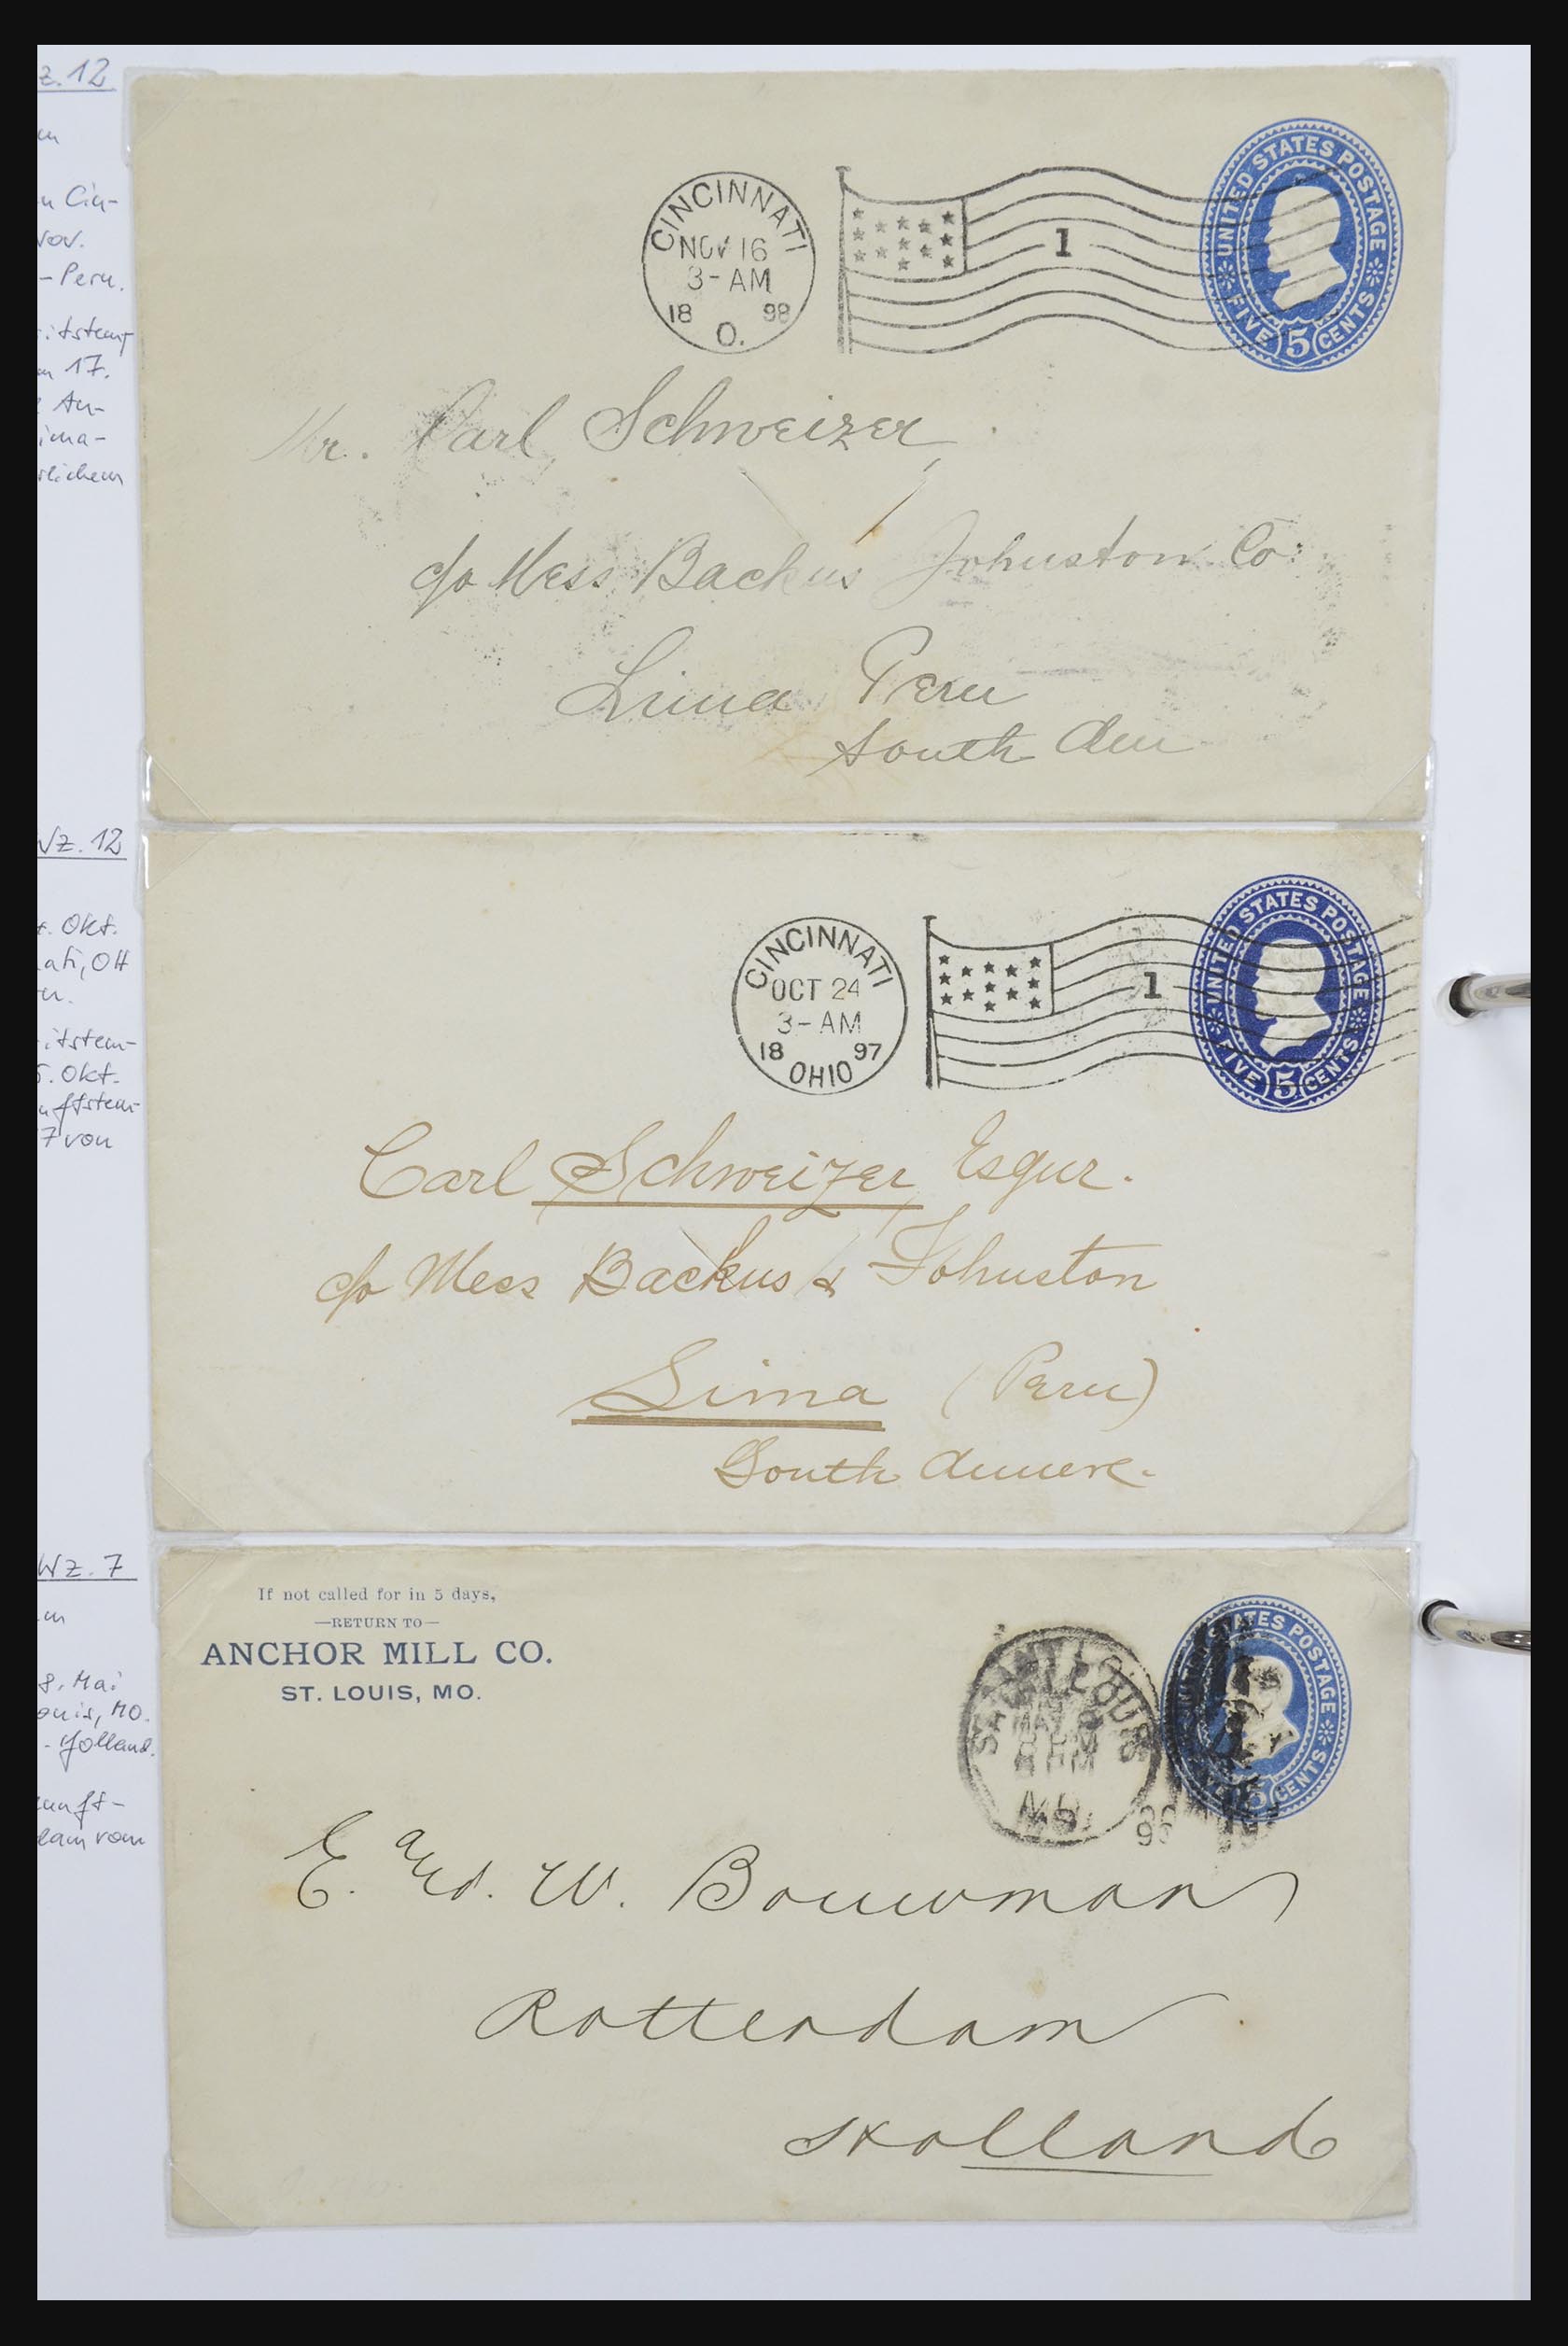 z. 12
Cin-
Nov.
-Peru.
17.
An-
CINCINNATI
NOV 16
3-AM
18 98
O.
1
UNITED STATES POSTAGE
FIVE 5 CENTS
Mr. Carl Schweizer,
c/o Mess Backus Johnston Co.
Lima Peru
South Am
Wz. 12
Okt.
ati, OH
Okt.
7 von
CINCINNATI
OCT 24
3-AM
18 97
OHIO
1
UNITED STATES POSTAGE
FIVE 5 CENTS
Carl Schweizer Esqur.
c/o Mess Backus & Johnston
Lima (Peru)
South Amere.
Wz. 7
8. Mai
ouis, MO.
-Holland.
unft-
dam vom
If not called for in 5 days,
—RETURN TO—
ANCHOR MILL CO.
ST. LOUIS, MO.
SAINT LOUIS
MO.
STATES POSTAGE
5 CENTS
E. and W. Bouwman
Rotterdam
Holland